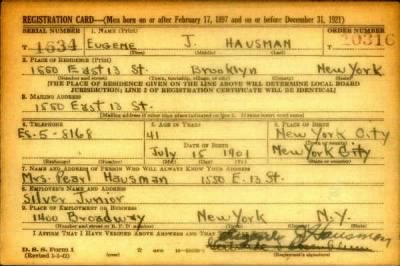 REGISTRATION CARD—(Men born on or after February 17, 1897 and on or before December 31, 1921)
SERIAL NUMBER 1. NAME (Print) ORDER NUMBER
T 1634 EUGENE J. HAUSMAN 10316
(First) (Middle) (Last)
2. PLACE OF RESIDENCE (Print)
1550 East 13 St. Brooklyn New York
(Number and street) (Town, township, village, or city) (County) (State)
[THE PLACE OF RESIDENCE GIVEN ON THE LINE ABOVE WILL DETERMINE LOCAL BOARD
JURISDICTION; LINE 2 OF REGISTRATION CERTIFICATE WILL BE IDENTICAL]
3. MAILING ADDRESS
1550 East 13 St.
[Mailing address if other than place indicated on line 2. If same insert word same]
4. TELEPHONE 5. AGE IN YEARS 6. PLACE OF BIRTH
ES-5-8168 41 New York City
DATE OF BIRTH (Town or county)
July 15 1901 New York City
(Exchange) (Number) (Mo.) (Day) (Yr.) (State or country)
7. NAME AND ADDRESS OF PERSON WHO WILL ALWAYS KNOW YOUR ADDRESS
Mrs. Pearl Hausman 1550 E. 13 St.
8. EMPLOYER'S NAME AND ADDRESS
Silver Junior
9. PLACE OF EMPLOYMENT OR BUSINESS
1400 Broadway New York N.Y.
(Number and street or R. F. D. number) (Town) (County) (State)
I AFFIRM THAT I HAVE VERIFIED ABOVE ANSWERS AND THAT THEY ARE TRUE.
D. S. S. Form 1
Hausman